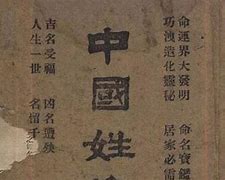 命運界大發明 命名寶鑑
巧洩造化靈秘 居家必需
中國姓
吉名受福 凶名遭殃
人生一世 名留千